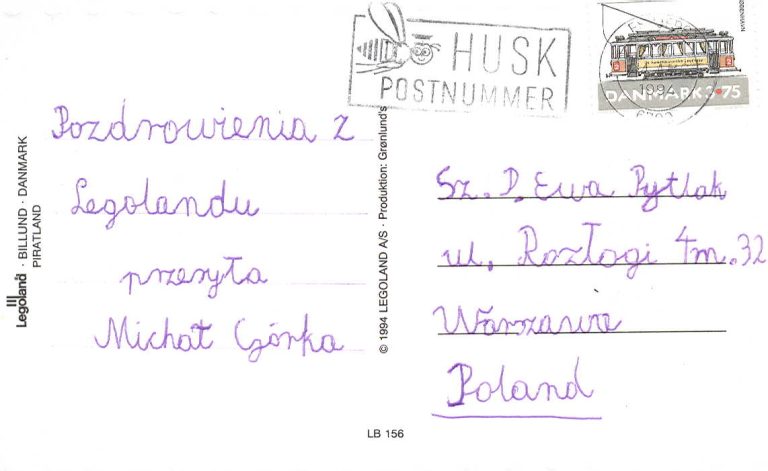 HUSK
POSTNUMMER
1994
DANMARK 3.75
Pozdrowienia z
Legolandu
przesyła
Michał Górka
Legoland · BILLUND · DANMARK
PIRATLAND
© 1994 LEGOLAND A/S · Produktion: Grønlund's
Sz. P. Ewa Pytlak
ul. Rozłogi 4m.32
Warszawa
Poland
LB 156